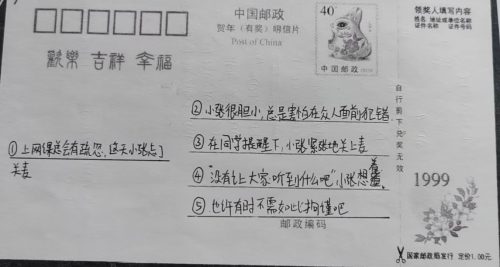 中国邮政
贺年（有奖）明信片
Post of China
40
中国邮政
领奖人填写内容
姓名 地址或单位名称
证件名称 证件号码
歡樂 吉祥 幸福
①上网课总会有疏忽，这天小张忘了
关麦
②小张很胆小，总是害怕在众人面前犯错
③在同学提醒下，小张紧张地关上麦
④“没有让大家听到什么吧”小张想着
⑤也许有时不需如此拘谨吧
邮政编码
自行剪下兑奖无效
1999
国家邮政局发行 定价1.00元